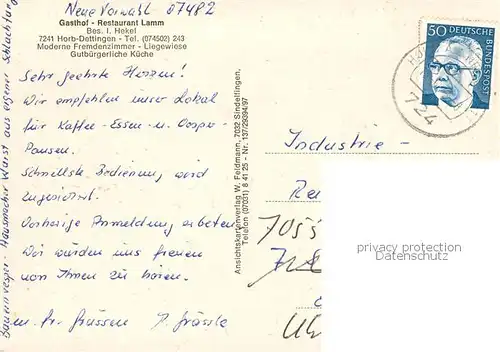 Neue Vorwahl 07482
Gasthof - Restaurant Lamm
Bes. I. Hekel
7241 Horb-Dettingen - Tel. (074502) 243
Moderne Fremdenzimmer - Liegewiese
Gutbürgerliche Küche
Sehr geehrte Herren!
Wir empfehlen unser Lokal
für Kaffee-Essen-u. Vesper-
Pausen.
Schnellste Bedienung wird
zugesichert.
Vorherige Anmeldung erbeten
Wir würden uns freuen
von Ihnen zu hören.
m. fr. Grüssen
Bauernvesper - Hausmacher Wurst aus eigener Schlachtung
Ansichtskartenverlag W. Feldmann, 7032 Sindelfingen,
Telefon (07031) 8 41 25 - Nr. 137/29394/97
50 DEUTSCHE
BUNDESPOST
724
Industrie -
7055
privacy protection
Datenschutz